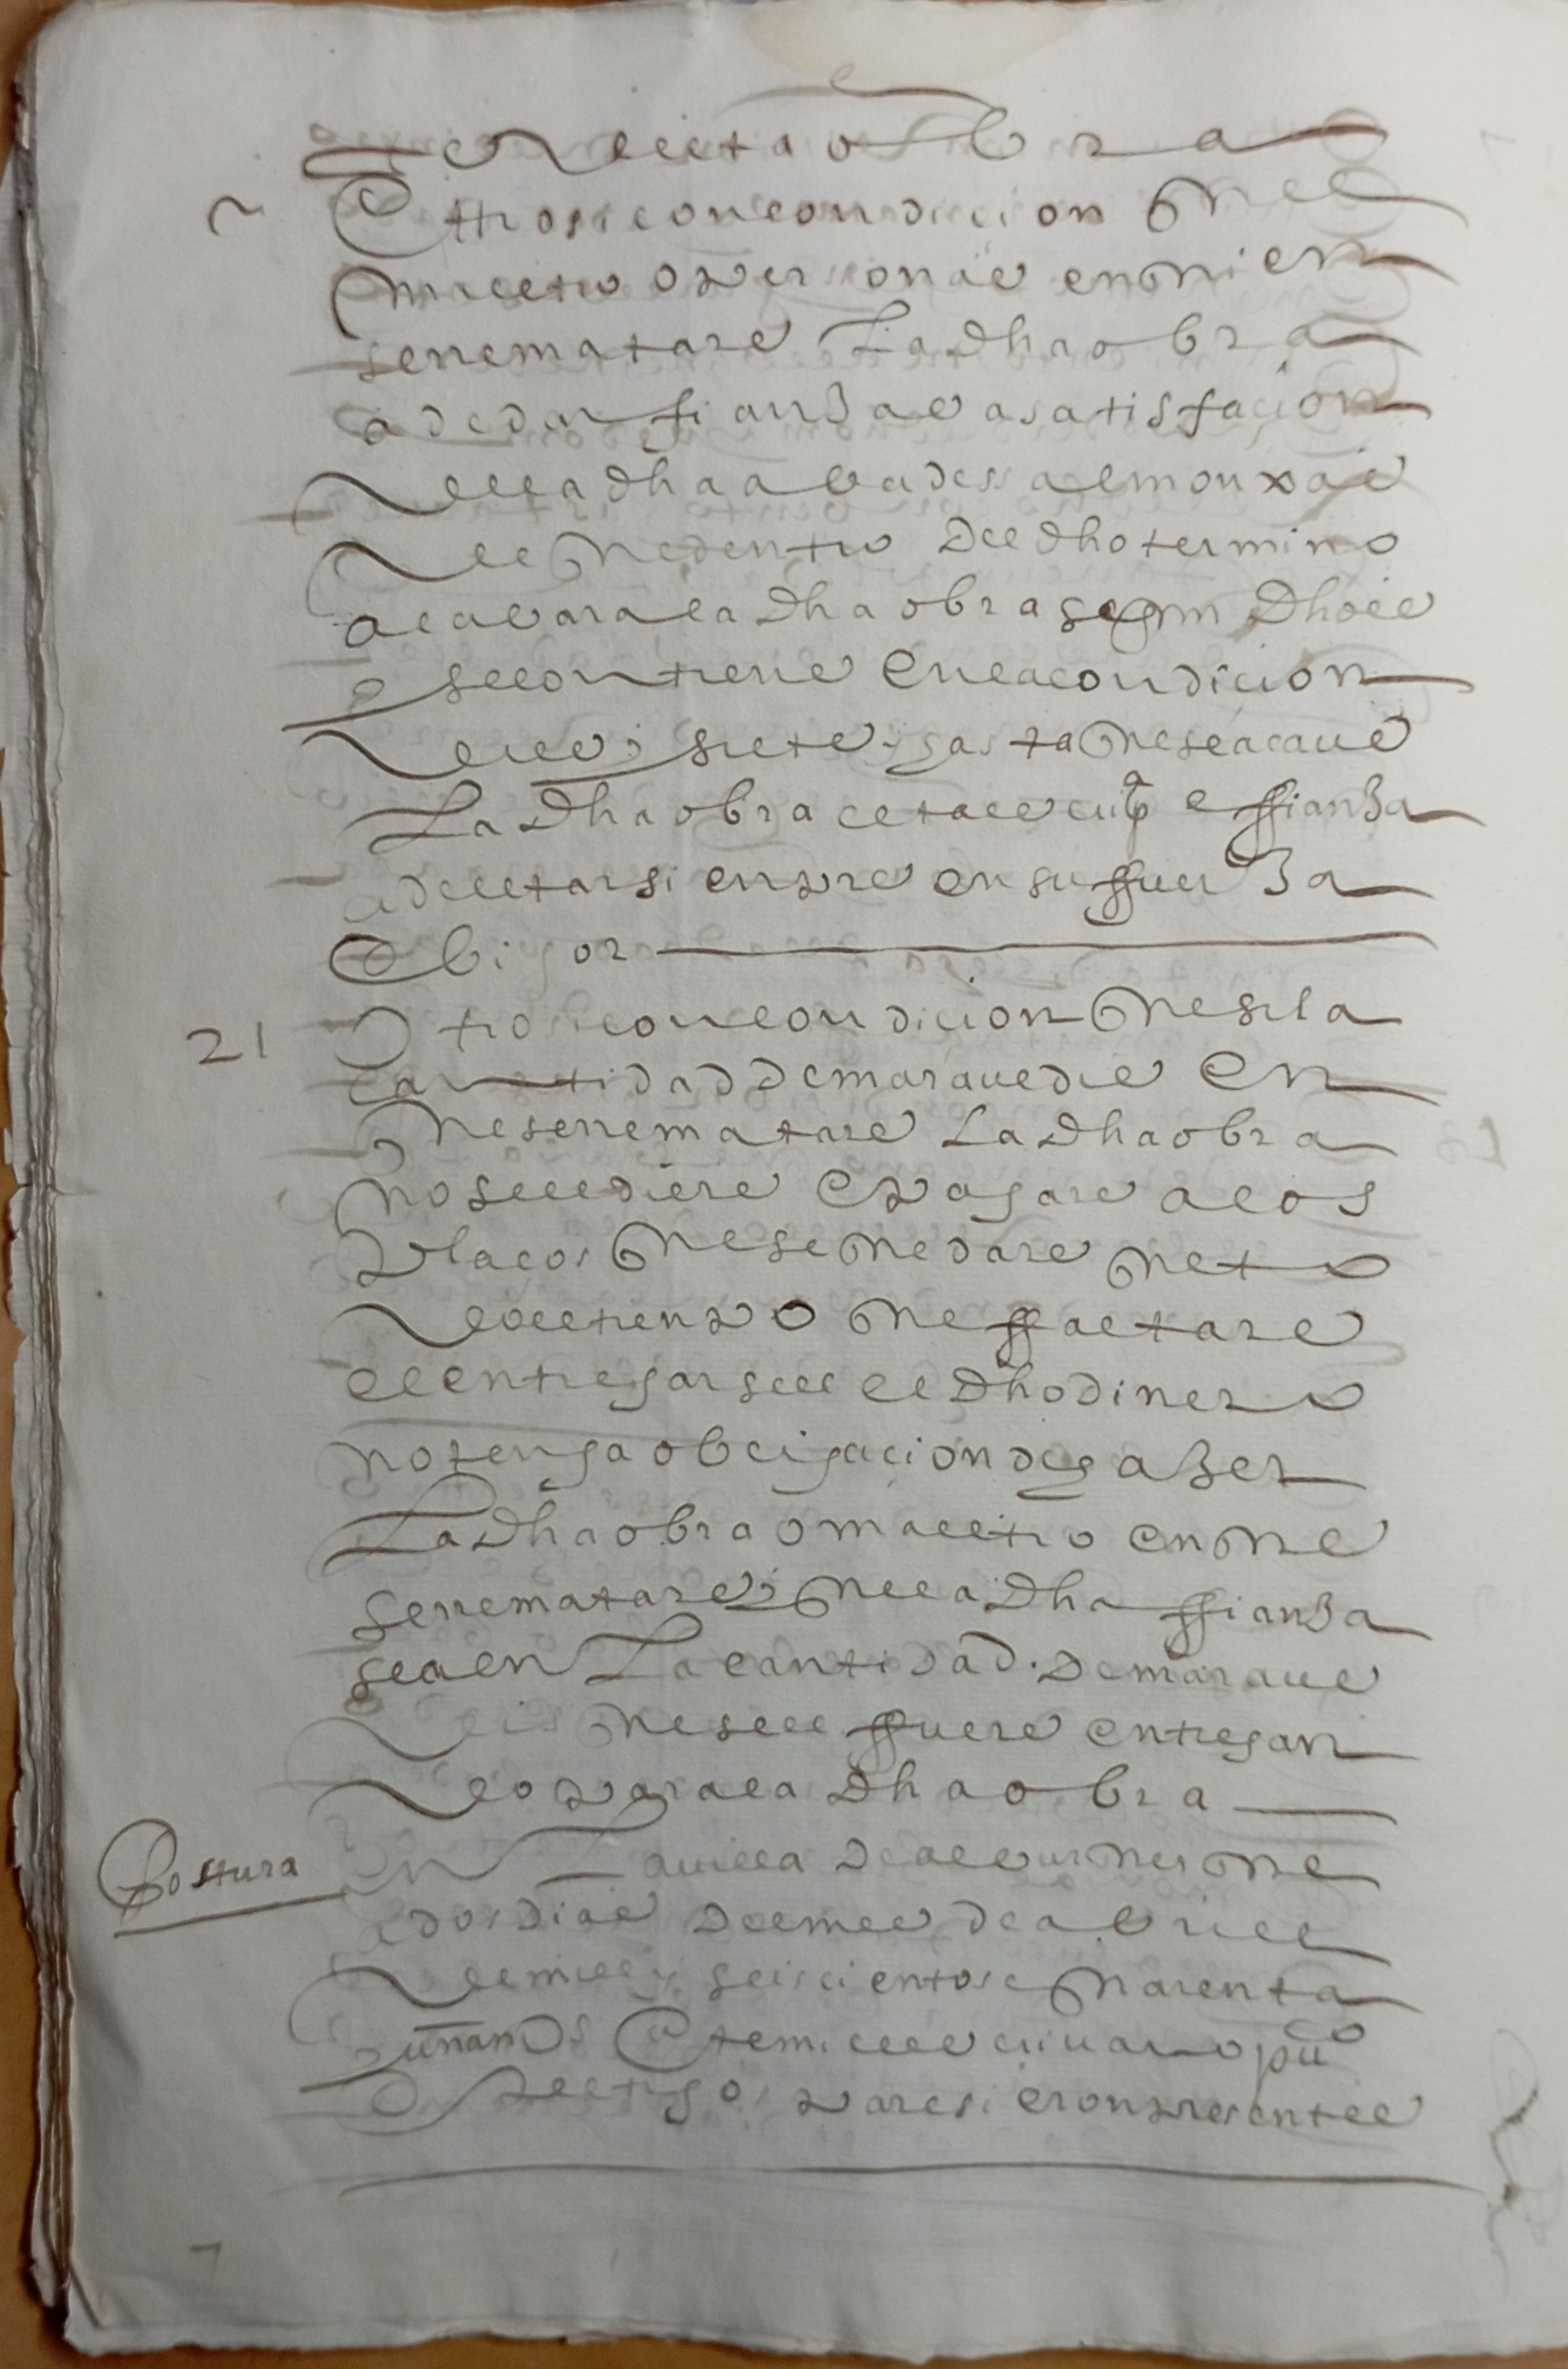 de esta obra
Ottrosi con condicion quel
maestro o personas en quien
se rematare La dha obra
a de dar fianzas a satisfacion
de la dha abadesa e monxas
de que dentro del dho termino
acavara la dha obra segun dho es
e se contiene en la condicion
diez y siete y asta que se acave
La dha obra esta escriptª e fianza
a de estar sienpre en su fuerza
e bigor
21 Otrosi con condicion que si la
cantidad de maravedis en
que se rematare La dha obra
no se le diere e pagare a los
placos que se quedare questo
del tienpo que faltare
el entregarsele el dho dinero
no tenga obligacion de azer
La dha obra o maestro en que
se rematare y que la dha fianza
sea en La cantidad de marave
dis que se le fuere entregan
do para la dha obra
Postura En La villa de alburquerque
a dos dias del mes de abril
de mill y seiscientos e quarenta
y un años Ante mi el escrivano puco
e testigos paresieron presentes